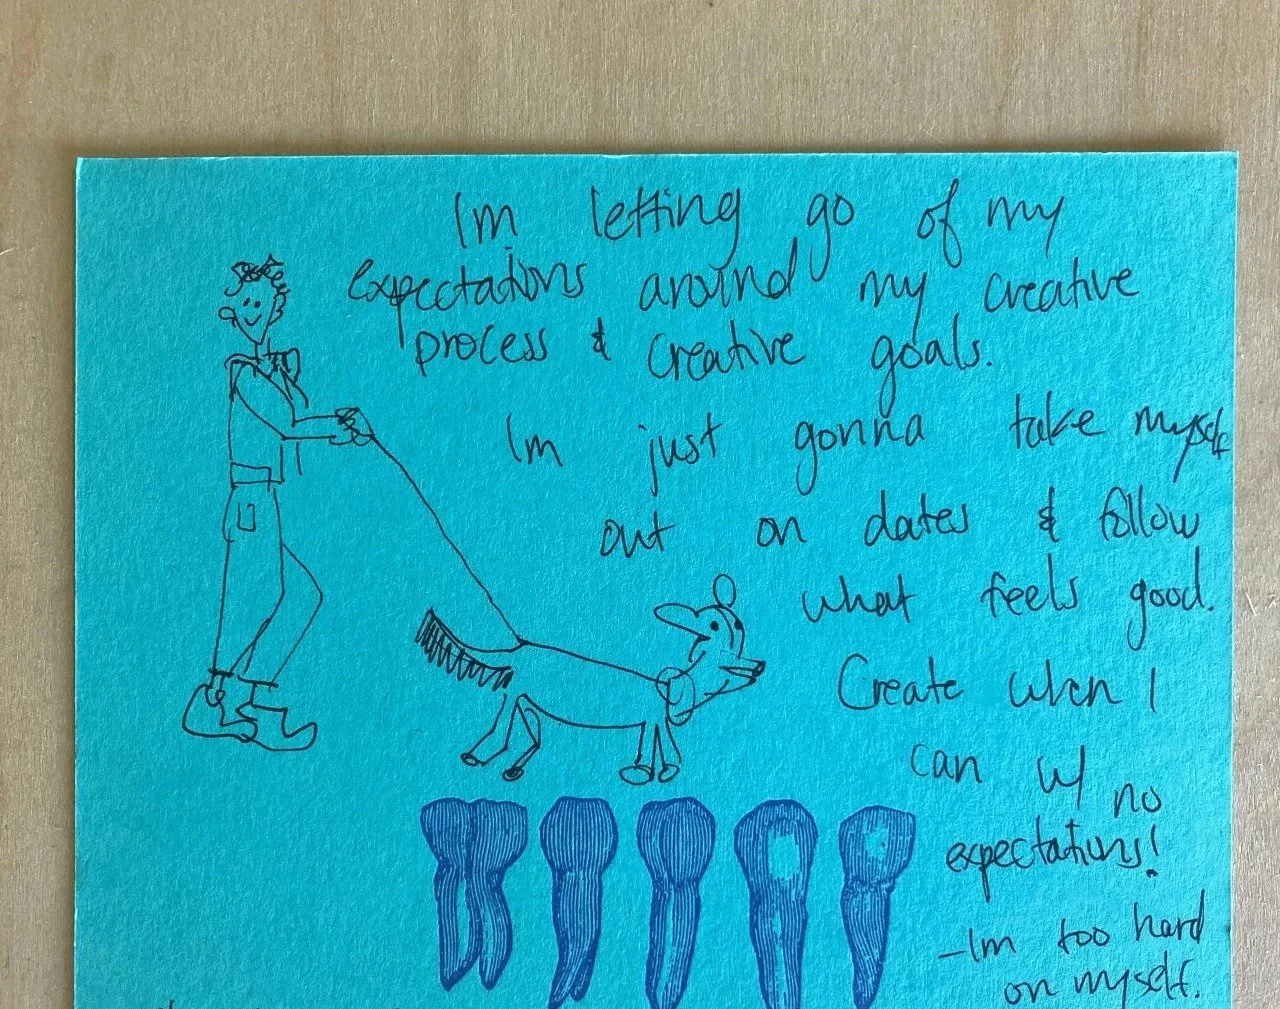 Im letting go of my
expectations around my creative
process & creative goals.
Im just gonna take myself
out on dates & follow
what feels good.
Create when I
can w/ no
expectations!
-Im too hard
on myself.